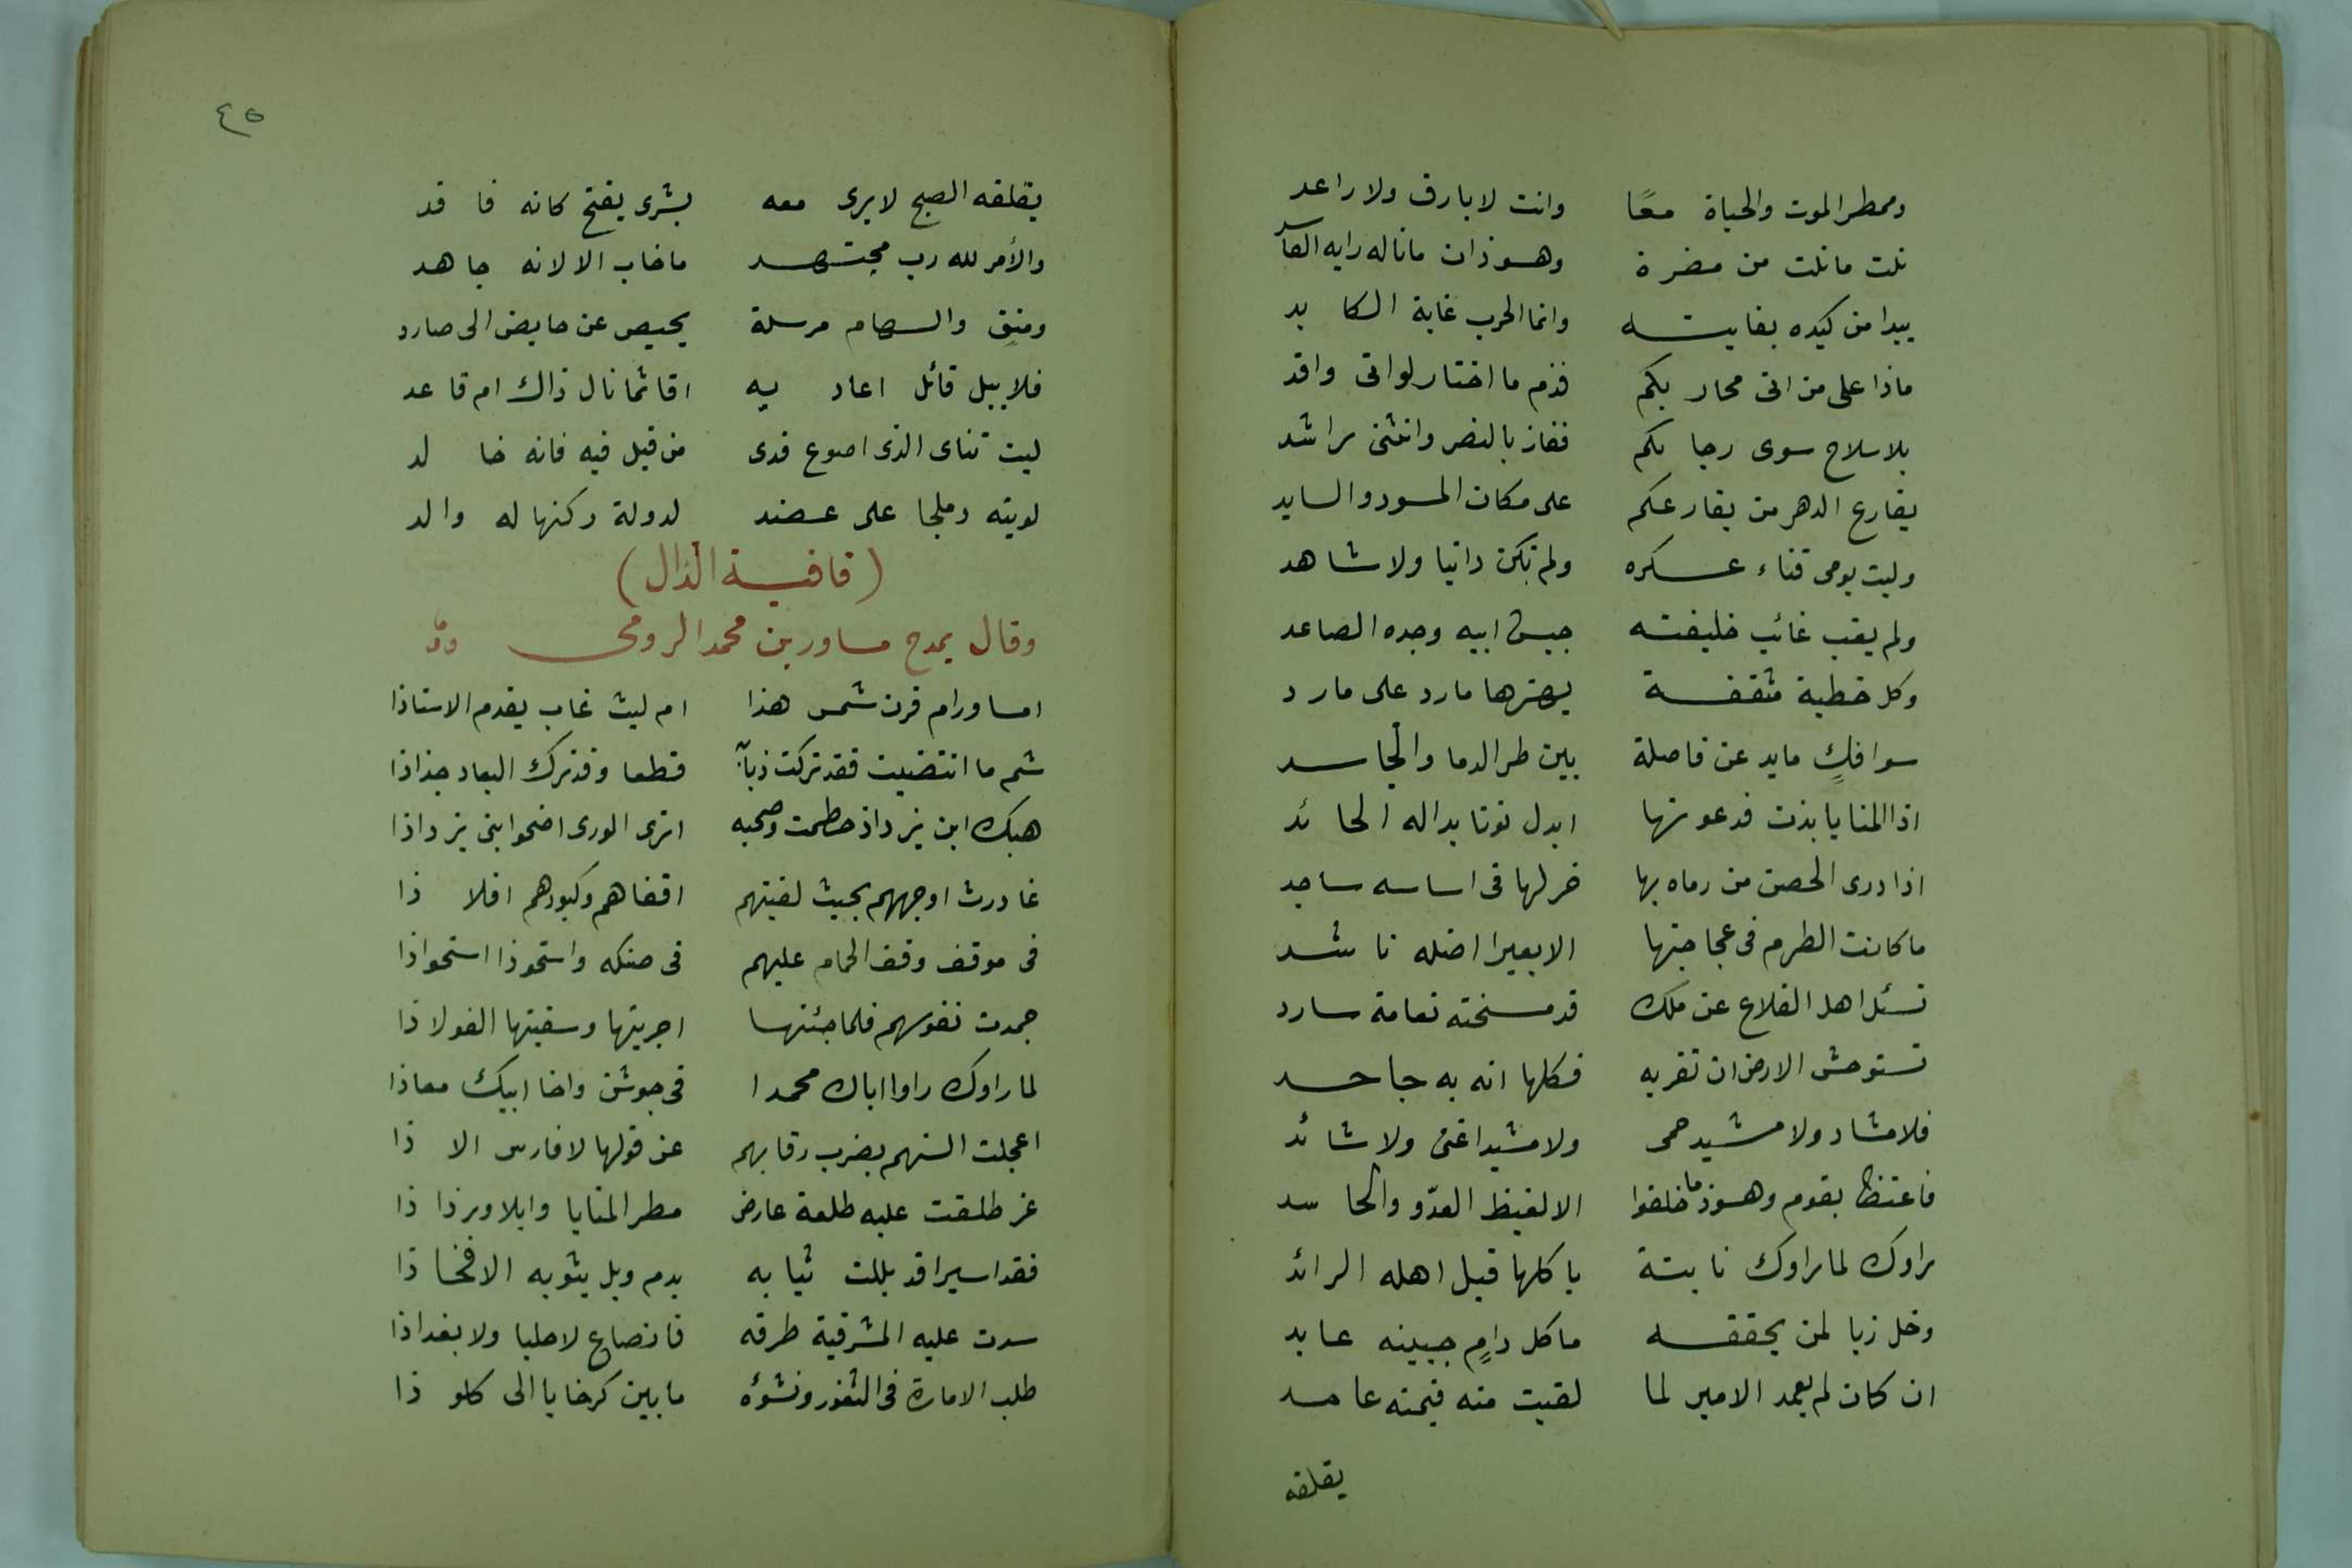 وممطر الموت والحياة معًا وانت لا بارق ولا راعد
نلت ما نلت من مضرة وهسوذان ما ناله رايه الفاسد
يبدا من كيده بغايته وانما الحرب غاية الكايد
ماذا على من اتى محاربكم فذم ما اختار لو اتى وافد
بلا سلاح سوى رجابكم ففاز بالنصر وانثنى راشد
يقارع الدهر من يقارعكم على مكان المسود والسايد
وليت يومى فناء عسكره ولم تكن دانيا ولا شاهد
ولم يغب غائب خليفته جيش ابيه وجده الصاعد
وكل خطية مثقفة يهزها مارد على مارد
سوافكٍ مايدعن فاصلة بين طر الدما والجاسد
اذا المنايا بذت فدعوتها ابدل نونا بداله الحائد
اذا درى الحصن من رماه بها خر لها فى اساسه ساجد
ما كانت الطرم فى عجاجتها الا بعيرا اضله ناشد
تسئل اهل القلاع عن ملك قد مسخته نعامة سارد
تستوحش الارض ان تقر به فكلها انه به جاحد
فلا مشاد ولا مشيد حمى ولا مشيد اغنى ولا شائد
فاغتظ بقوم وهسوذ ما خلقوا الا لغيظ العدّو والحاسد
راوك لما راوك نابتة ياكلها قبل اهله الرائد
وخل زيا لمن يحققه ما كل دامٍ جبينه عابد
ان كان لم يعمد الامير لما لقيت منه فيمنه عامد
يقلقه
٤٥
يقلقه الصبح لا يرى معه بشرى بفتح كانه فاقد
والأمر لله رب مجتهد ما خاب الا لانه جاهد
ومتقٍ والسهام مرسلة يحيص عن حابض الى صارد
فلا يبل قاتل اعاديه اقائما نال ذاك ام قاعد
ليت ثناى الذى اصوغ فدى من قيل فيه فانه خالد
لويته دملجا على عضد لدولة ركنها له والد
(قافية الذال)
وقال يمدح مساور بن محمد الرومى
امساور ام قرن شمس هذا ام ليث غاب يقدم الاستاذا
شم ما انتضيت فقد تركت ذبابه قطعا وقد ترك العباد جذاذا
هبك ابن يزداذ حطمت وصحبه اترى الورى اضحوا بنى يزداذا
غادرت اوجههم بحيث لقيتهم اقفاهم وكبودهم افلاذا
فى موقف وقف الحمام عليهم فى ضنكه واستحوذا استحواذا
جمدت نفوسهم فلما جئتها اجريتها وسقيتها الفولاذا
لما راوك راوا اباك محمدا فى جوشن واخا ابيك معاذا
اعجلت السنهم بضرب رقابهم عن قولها لا فارس الا ذا
غر طلعت عليه طلعة عارض مطر المنايا وابلا ورذاذا
فقد اسيرا قد بللت ثيابه بدم وبل ببوله الافخاذا
سدت عليه المشرفية طرقه فانصاع لا حلبا ولا بغداذا
طلب الامارة فى الثغور ونشوئه ما بين كرخايا الى كلواذا